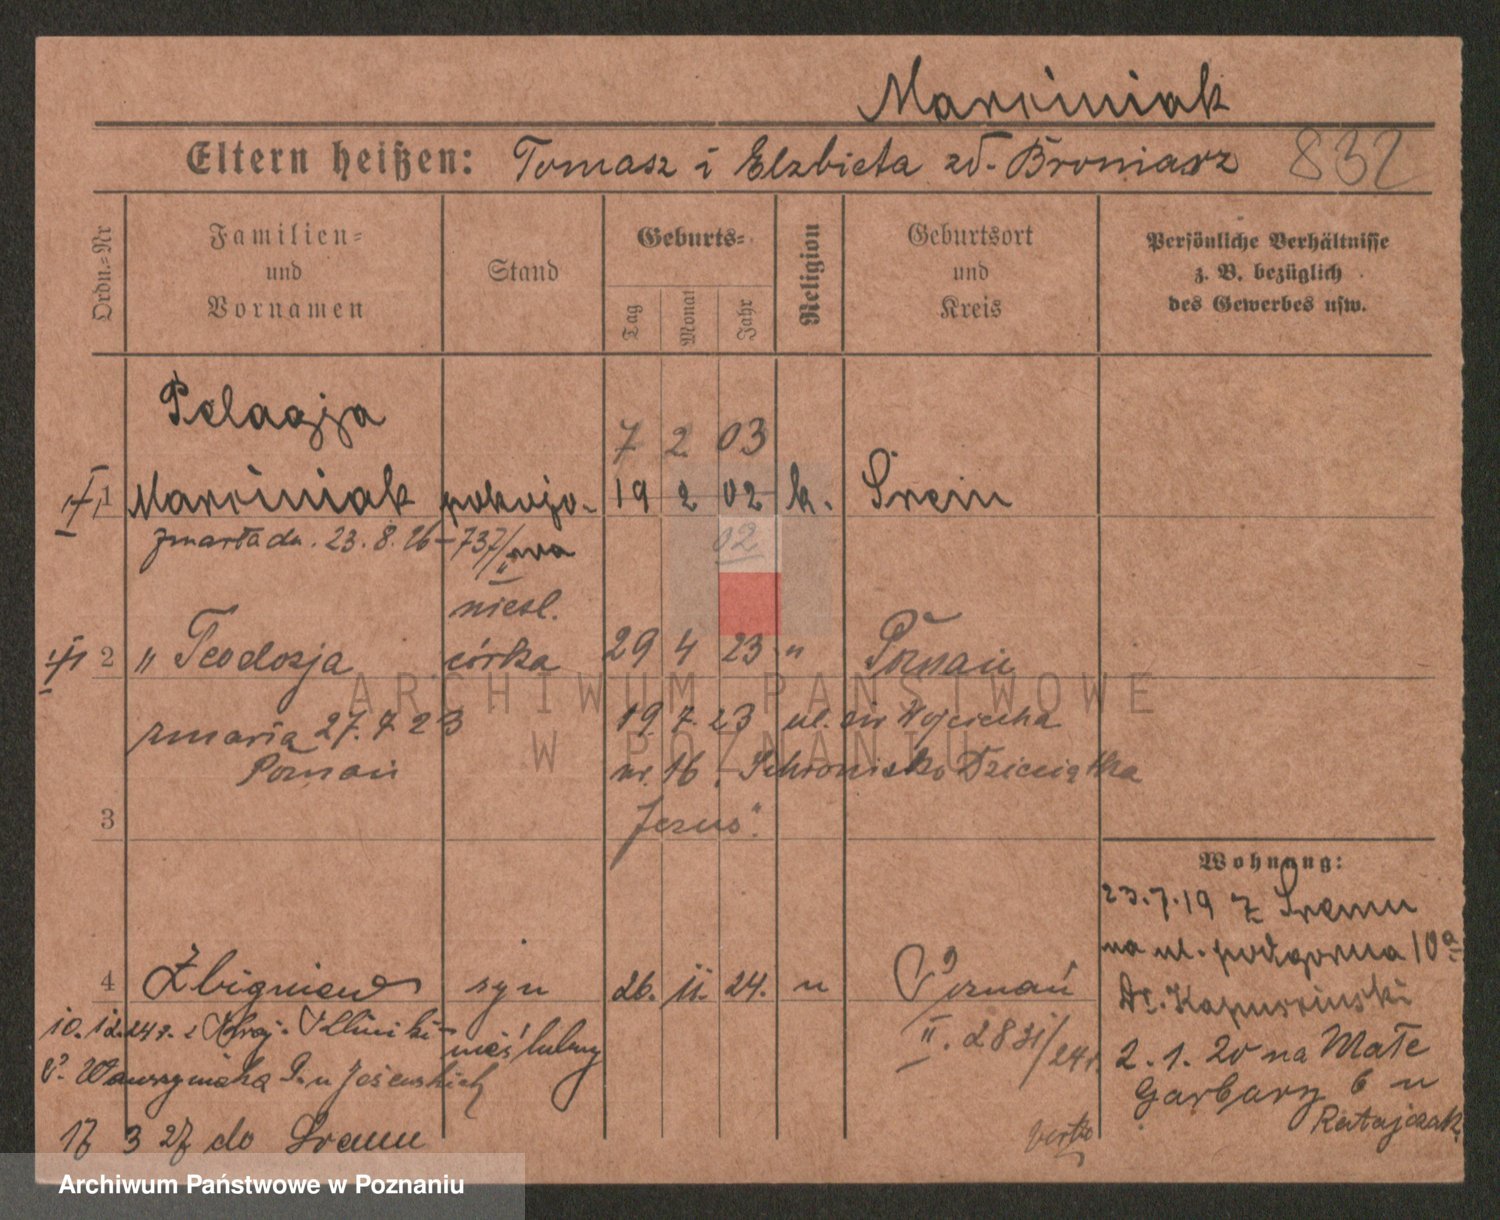 Marciniak
Eltern heißen: Tomasz i Elzbieta zd. Broniarz 832
Ordn.-Nr
Familien-
und
Vornamen
Stand
Geburts-
Tag
Monat
Jahr
Religion
Geburtsort
und
Kreis
Persönliche Verhältnisse
z. B. bezüglich
des Gewerbes usw.
Pelagja
7 2 03
1 Marciniak pokojo- 19 2 02 k. Śrem
zmarła dn. 23. 8. 26 - 737/ wa
02
niesl.
2 " Teodozja córka 29 4 23 " Poznań
zmarła 27. 7. 23 19. 7. 23 ul. św Wojciecha
Poznań nr. 16 Schronisko Dzieciątka
3 Jezus".
Wohnung:
23.7.19 z Śremu
na ul. podgórna 10a
4 Zbigniew syn 26. 11. 24. " Poznań
Dr. Kapuscinski
10. 12. 24 r. z Kraj. Kliniki nieślubny
II. 2831/24 r.
2. 1. 20 na Małe
Garbary 6 u
Ratajczak
Wawrzyniaka
17 3 27 do Śremu
verte
ARCHIWUM PAŃSTWOWE
W POZNANIU
Archiwum Państwowe w Poznaniu